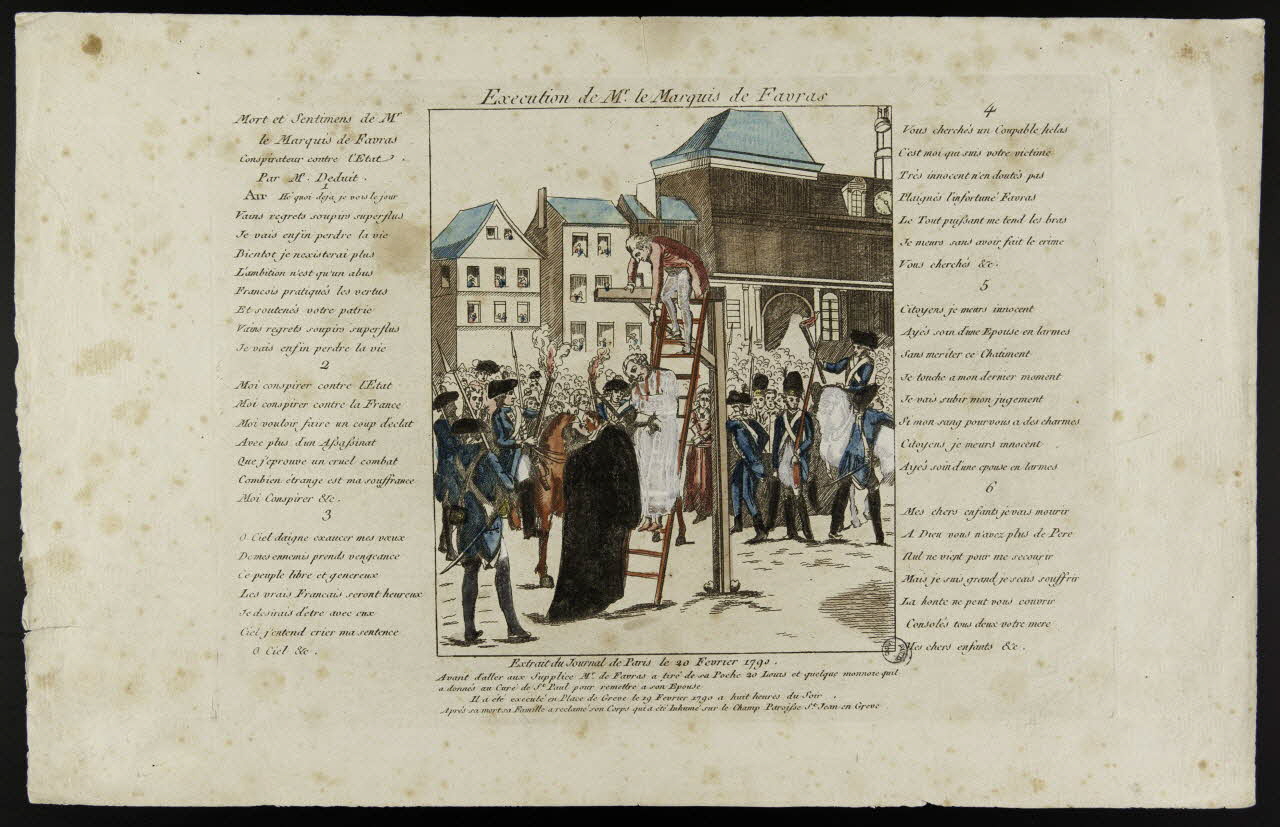 Execution de Mr. le Marquis de Favras
Mort et Sentimens de Mr
le Marquis de Favras
Conspirateur contre l'Etat.
Par Mr. Déduit.
1
Air Hé quoi deja je vois le jour
Vains regrets soupirs superflus
Je vais enfin perdre la vie
Bientot je nexisterai plus
L'ambition n'est qu'un abus
Francois pratiqués les vertus
Et soutenés votre patrie
Vains regrets soupirs superflus
Je vais enfin perdre la vie
2
Moi conspirer contre l'Etat
Moi conspirer contre la France
Moi vouloir faire un coup declat
Avec plus d'un Assassinat
Que j'eprouve un cruel combat
Combien étrange est ma souffrance
Moi Conspirer &c.
3
O Ciel daigne exaucer mes vœux
De mes ennemis prends vengeance
Ce peuple libre et genereux
Les vrais Francais seront heureux
Je desirais d'etre avec eux
Ciel j'entend crier ma sentence
O Ciel &c.
4
Vous cherchés un Coupable helas
C'est moi qui suis votre victime
Très innocent n'en doutés pas
Plaignés l'infortuné Favras
Le Tout puissant me tend les bras
Je meurs sans avoir fait le crime
Vous cherchés &c.
5
Citoyens je meurs innocent
Ayés soin d'une Epouse en larmes
Sans meriter ce Chatiment
Je touche a mon dernier moment
Je vais subir mon jugement
Si mon sang pour vous a des charmes
Citoyens je meurs innocent
Ayés soin d'une epouse en larmes
6
Mes chers enfants je vais mourir
A Dieu vous n'avez plus de Pere
Nul ne vient pour me secourir
Mais je suis grand je scais souffrir
La honte ne peut vous couvrir
Consolés tous deux votre mere
Mes chers enfants &c.
Extrait du Journal de Paris le 20 Fevrier 1790.
Avant d'aller aux Supplice Mr. de Favras a tiré de sa Poche 20 Louis et quelque monnoie quil
a donnés au Curé de St. Paul pour remettre a son Epouse
Il a été executé en Place de Greve le 19 Fevrier 1790 a huit heures du Soir.
Après sa mort sa Famille a reclamé son Corps qui a été Inhumé sur le Champ Paroisse St. Jean en Greve